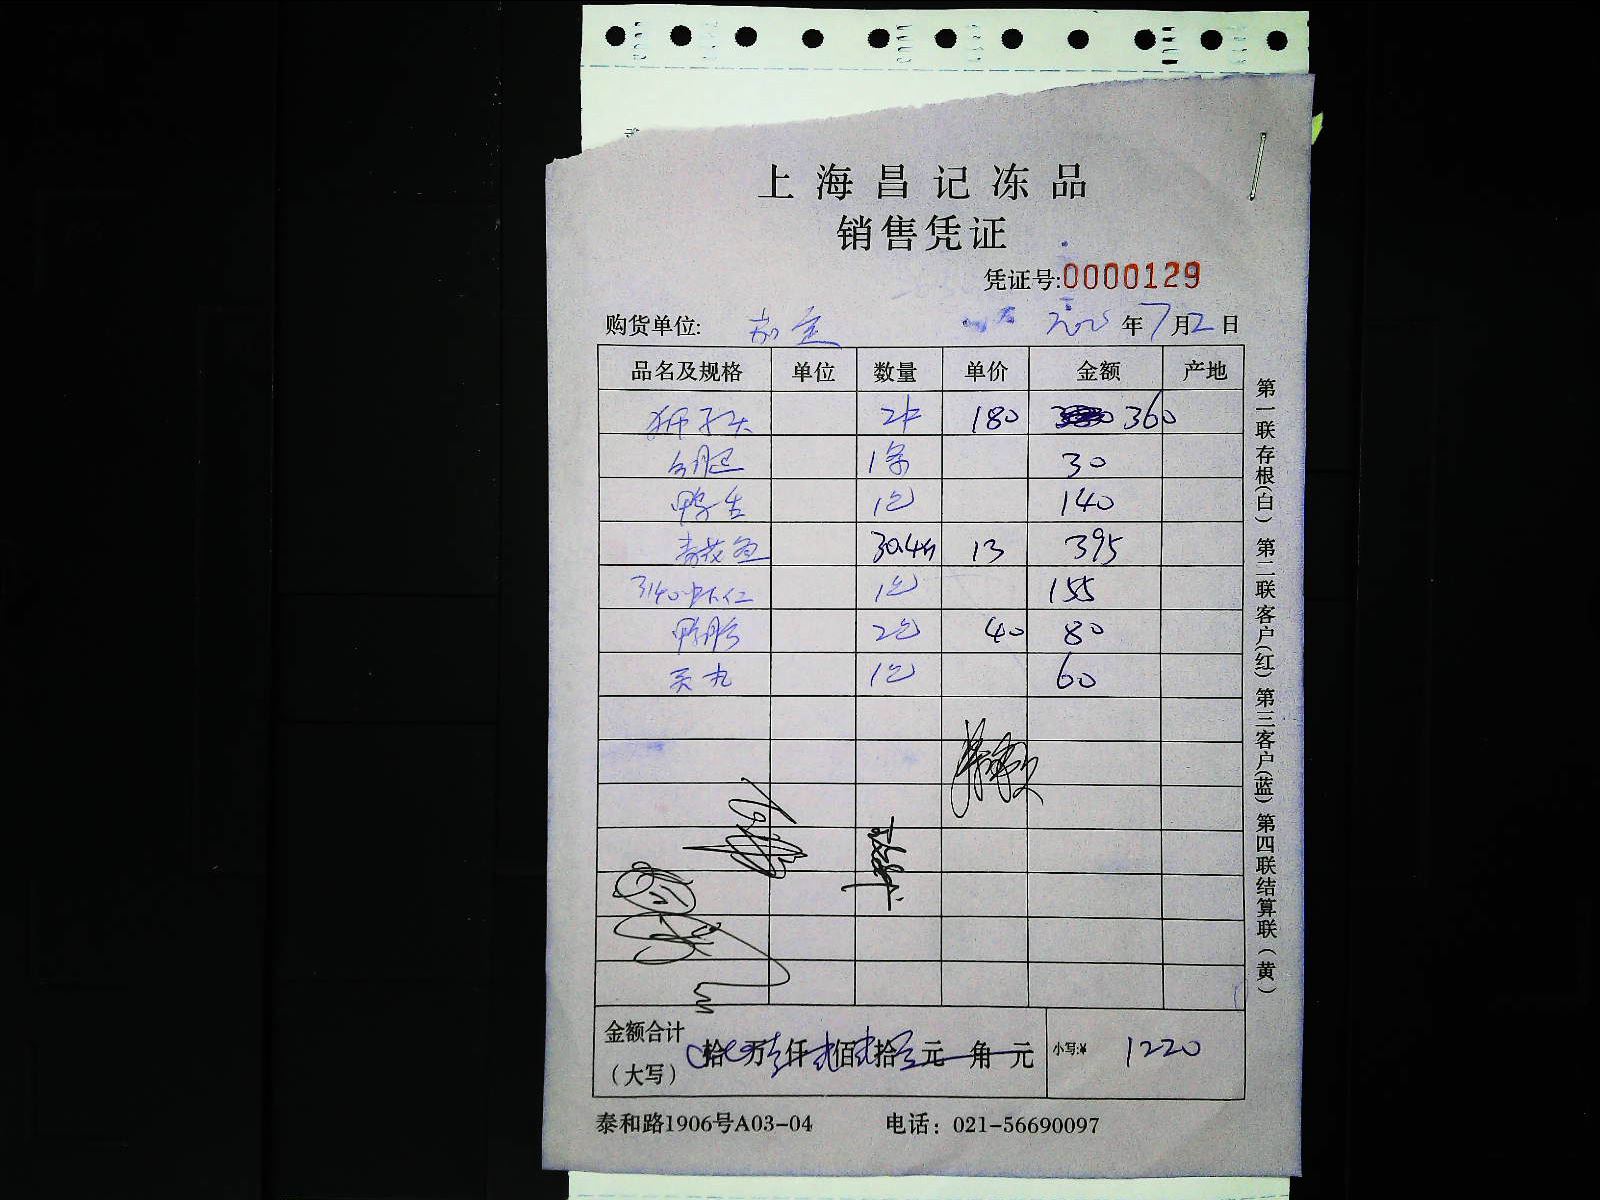 上海昌记冻品
销售凭证
凭证号:0000129
购货单位: 嘉定 2025年7月2日
品名及规格 单位 数量 单价 金额 产地
狮子头 2件 180 360
1条 30
鸭舌 1包 140
青花鱼 30.4斤 13 395
3140虾仁 1包 155
鸭胗 2包 40 80
贡丸 1包 60
金额合计
(大写) 拾万壹仟贰佰贰拾零元 角 元 小写:¥ 1220
泰和路1906号A03-04 电话: 021-56690097
第一联存根(白) 第二联客户(红) 第三客户(蓝) 第四联结算联(黄)